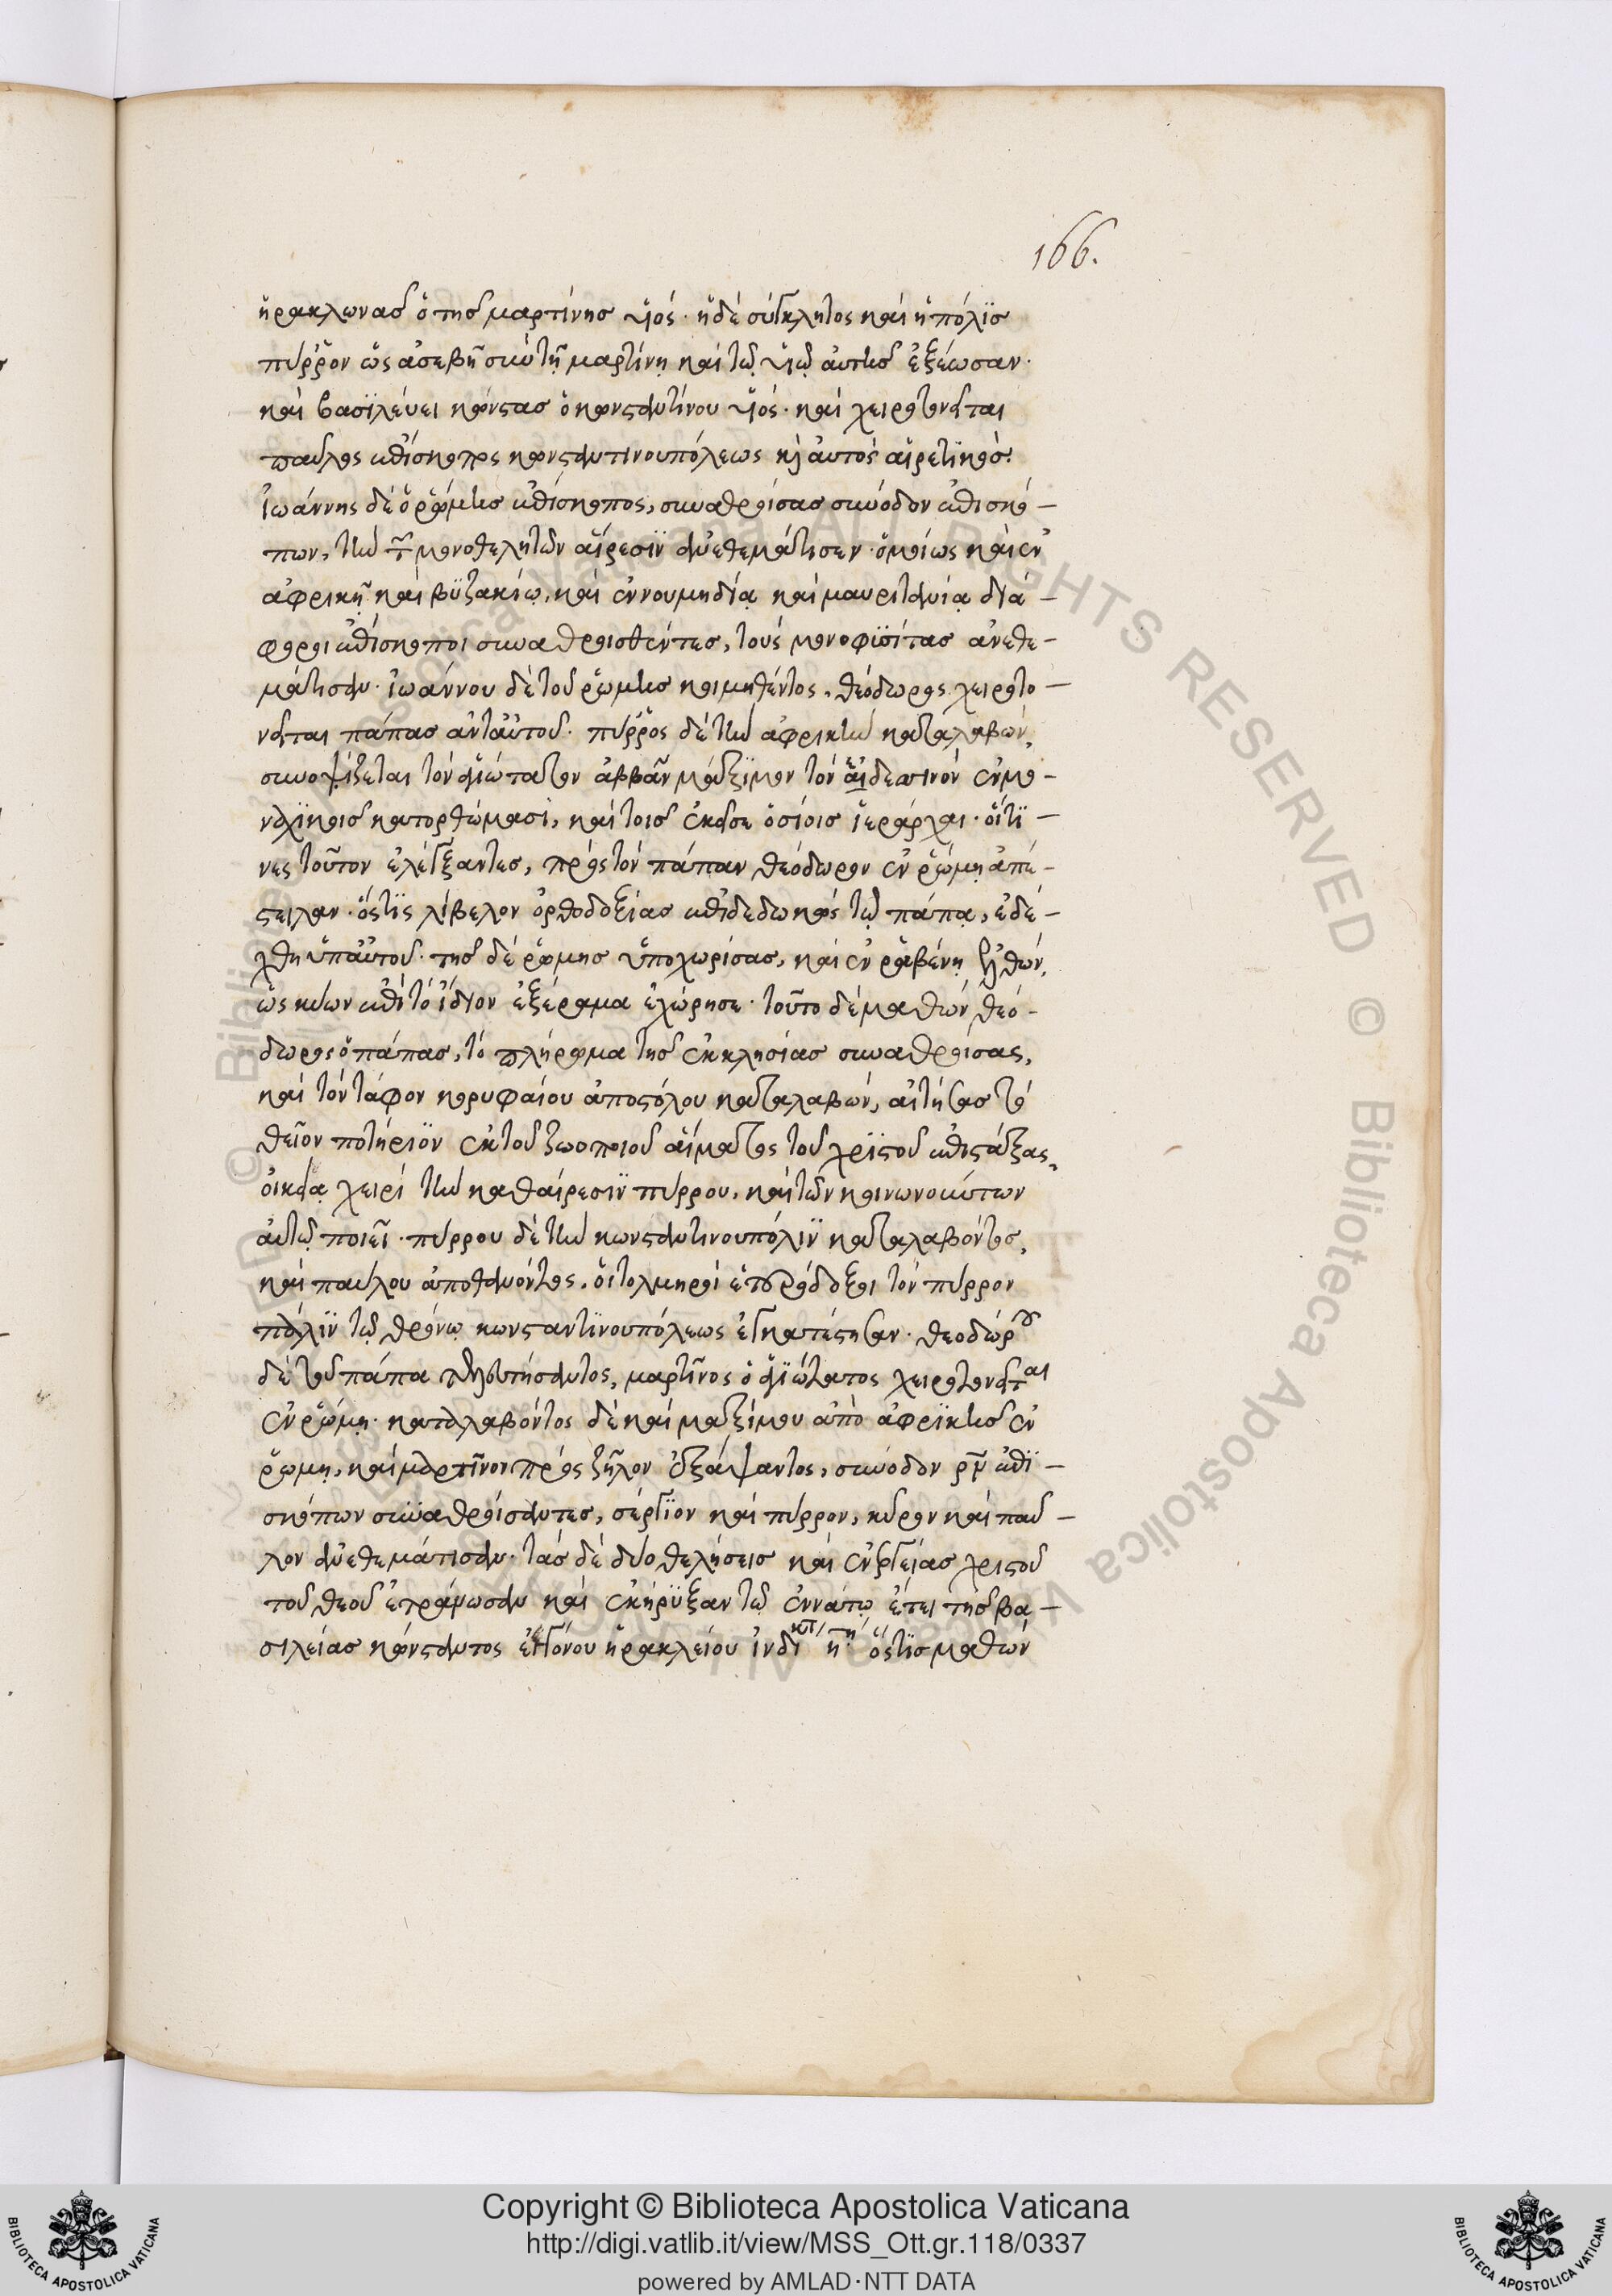 166.
ἡρακλωνασ ὁ τησ μαρτίνησ υἱός · ἡ δὲ σύγκλητος καὶ ἡ πόλϊσ
πύῤῥον ὡς ἀσεβῆ σὺν τῇ μαρτίνῃ καὶ τῷ υἱῷ αὐτῆσ ἐξέωσαν ·
καὶ βασϊλέυει κώνστασ ὁ κωνσταντίνου υἱός · καὶ χειροτονεῖται
παῦλος ἐπίσκοπος κωνσταντινουπόλεως κ αὐτὸς αἱρετϊκός ·
ἰωάννης δὲ ὁ ῥώμησ ἐπίσκοπος, συναθροίσασ σύνοδον ἐπισκό -
πων, τὴν τῶν μονοθελητῶν αἵρεσϊν ἀνεθεμάτισεν · ὁμοίως καὶ ἐν
ἀφρικῇ καὶ βϋζακίῳ, καὶ ἐν νουμηδίᾳ καὶ μαυριτανίᾳ διά -
φοροι ἐπίσκοποι συναθροισθέντεσ, τοὺς μονοφϋσίτασ ἀνεθε -
μάτισαν · ἰωάννου δὲ τοῦ ῥώμησ κοιμηθέντος, θεόδωρος χειροτο -
νεῖται πάπασ ἀντ αὐτοῦ · πύῤῥος δὲ τὴν ἀφρικὴν καταλαβὼν,
συνοψίζεται τὸν ἁγιώτατον ἀββᾶν μάξϊμον τὸν αἰδεστινὸν ἐν μο -
ναχϊκοισ κατορθώμασι, καὶ τοισ ἐκεῖσε ὁσίοισ ἱεράρχαι · οἵτϊ -
νες τοῦτον ἐλέγξαντεσ, πρὸς τὸν πάπαν θεόδωρον ἐν ῥώμῃ ἀπέ -
στειλαν · ὅστϊς λίβελον ὀρθοδοξίασ ἐπιδεδωκὼς τῷ πάπᾳ, ἐδέ -
χθη ὑπ αὐτοῦ · τησ δὲ ῥώμησ ὑποχωρίσασ, καὶ ἐν ῥαβένῃ ἐλθὼν,
ὡς κύων ἐπὶ τὸ ἴδιον ἐξέραμα ἐχώρησε · τοῦτο δὲ μαθὼν θεό -
δωρος ὁ πάπασ, τὸ πλήρωμα τησ ἐκκλησίασ συναθροισας,
καὶ τὸν τάφον κορυφαίου ἀποστόλου καταλαβὼν, αἰτήσασ τὸ
θεῖον ποτήριον ἐκ τοῦ ζωοποιοῦ αἵματος τοῦ χρϊστοῦ ἐπιστάξας,
οἰκείᾳ χειρὶ τὴν καθαίρεσϊν πύρρου, καὶ τῶν κοινωνούντων
αὐτῷ ποιεῖ · πύρρου δὲ τὴν κωνσταντινουπόλϊν καταλαβόντος,
καὶ παύλου ἀποθανόντος, οἱ τολμηροὶ ἑτερόδοξοι τὸν πύρρον
πάλϊν τῷ θρόνῳ κωνσταντϊνουπόλεως ἐγκατέστησαν · θεοδώρου
δὲ τοῦ πάπα τελευτήσαντος, μαρτῖνος ὁ ἁγϊώτατος χειροτονεῖται
ἐν ῥώμῃ · καταλαβόντος δὲ καὶ μαξίμου ἀπὸ ἀφρϊκῆσ ἐν
ῥώμῃ, καὶ μαρτῖνον πρὸς ζῆλον ἐξάψαντος, σύνοδον ρν ἐπϊ -
σκόπων συναθροίσαντεσ, σέργϊον καὶ πύρρον, κῦρον καὶ παῦ -
λον ἀνεθεμάτισαν · τὰσ δὲ δύο θελήσεισ καὶ ἐνεργείασ χριστοῦ
τοῦ θεοῦ ἐτράνωσαν καὶ ἐκήρϋξαν τῷ ἐννάτῳ ἔτει τῆσ βα -
σιλείασ κώνσταντος ἐγγόνου ἡρακλείου ἰνδικτ η · ὅστϊσ μαθὼν
Copyright © Biblioteca Apostolica Vaticana
http://digi.vatlib.it/view/MSS_Ott.gr.118/0337
powered by AMLAD·NTT DATA